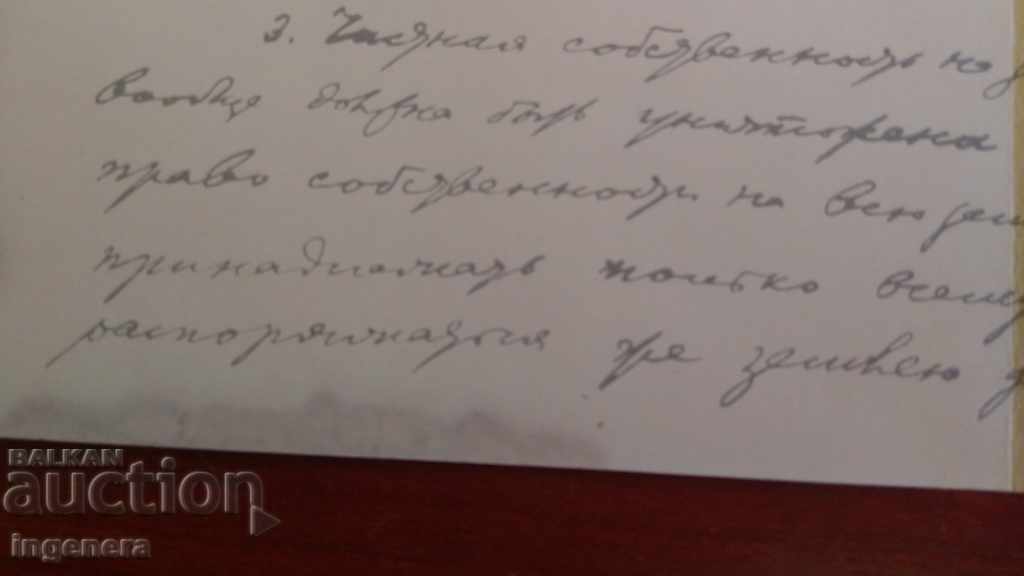 3. Частная собственность на
вообще должна быть уничтожена
право собственности на всю
принадлежать только
распоряжаться же землею
BALKAN
auction
ingenera